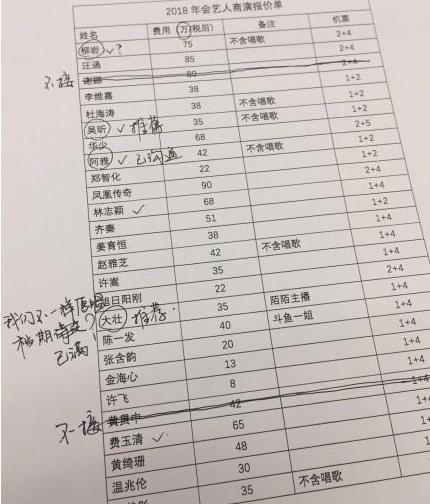 2018 年会艺人商演报价单
姓名 费用（万/税后） 备注 机票
柳岩 ✓? 75 不含唱歌 2+4
汪涵 85 2+4
不接 谢娜 80 2+4
李维嘉 38 1+2
杜海涛 38 不含唱歌 1+2
吴昕 ✓ 推荐 35 不含唱歌 1+2
华少 68 2+5
阿雅 ✓ 已沟通 42 不含唱歌 1+2
郑智化 22 1+2
凤凰传奇 90 2+4
林志颖 ✓ 68 1+4
齐秦 51 1+2
姜育恒 38 1+4
赵雅芝 42 不含唱歌 1+4
许嵩 35 1+4
旭日阳别 22 2+4
我们不一样
档期
已满
大壮 推荐 35 陌陌主播 1+4
陈一发 40 斗鱼一姐 1+4
张含韵 20 1+4
金海心 13 1+4
许飞 8 1+4
不接 黄贯中 42 1+4
费玉清 ✓ 65
黄绮珊 48
温兆伦 30
35 不含唱歌